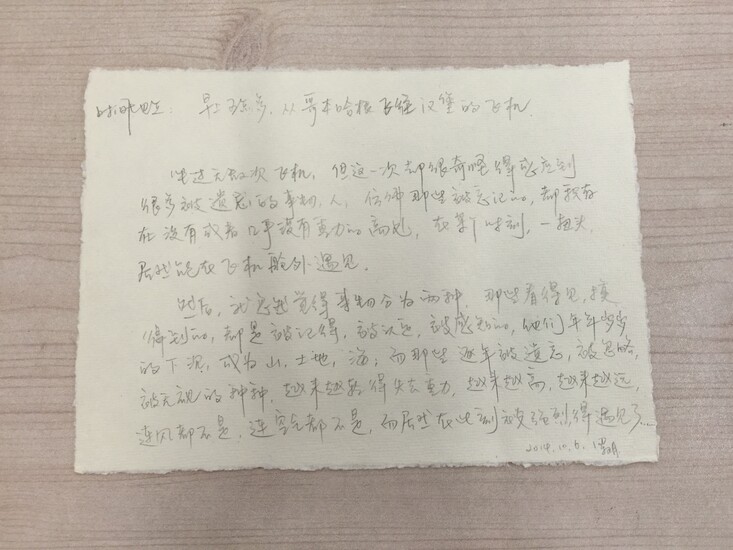 时间地点: 早 从哥本哈根飞 汉堡的飞机.
坐过无数次飞机, 但这一次却很奇怪得感应到
很多被遗忘的事物, 人, 仿佛那些被忘记的, 都救存
在没有或者几乎没有重力的高处, 在某个时刻, 一扭头,
居然能在飞机舱外遇见.
然后, 我忽然觉得事物分为两种. 那些看得见, 摸
得到的, 都是被记得, 被认定, 被感知的, 他们年年岁岁
的下沉, 成为山, 土地, 海; 而那些逐年被遗忘, 被忽略,
被无视的种种, 越来越轻得失去重力, 越来越高, 越来越远,
连风都不是, 连空气都不是, 而居然在此刻被强烈得遇见了...
2014.10.6.